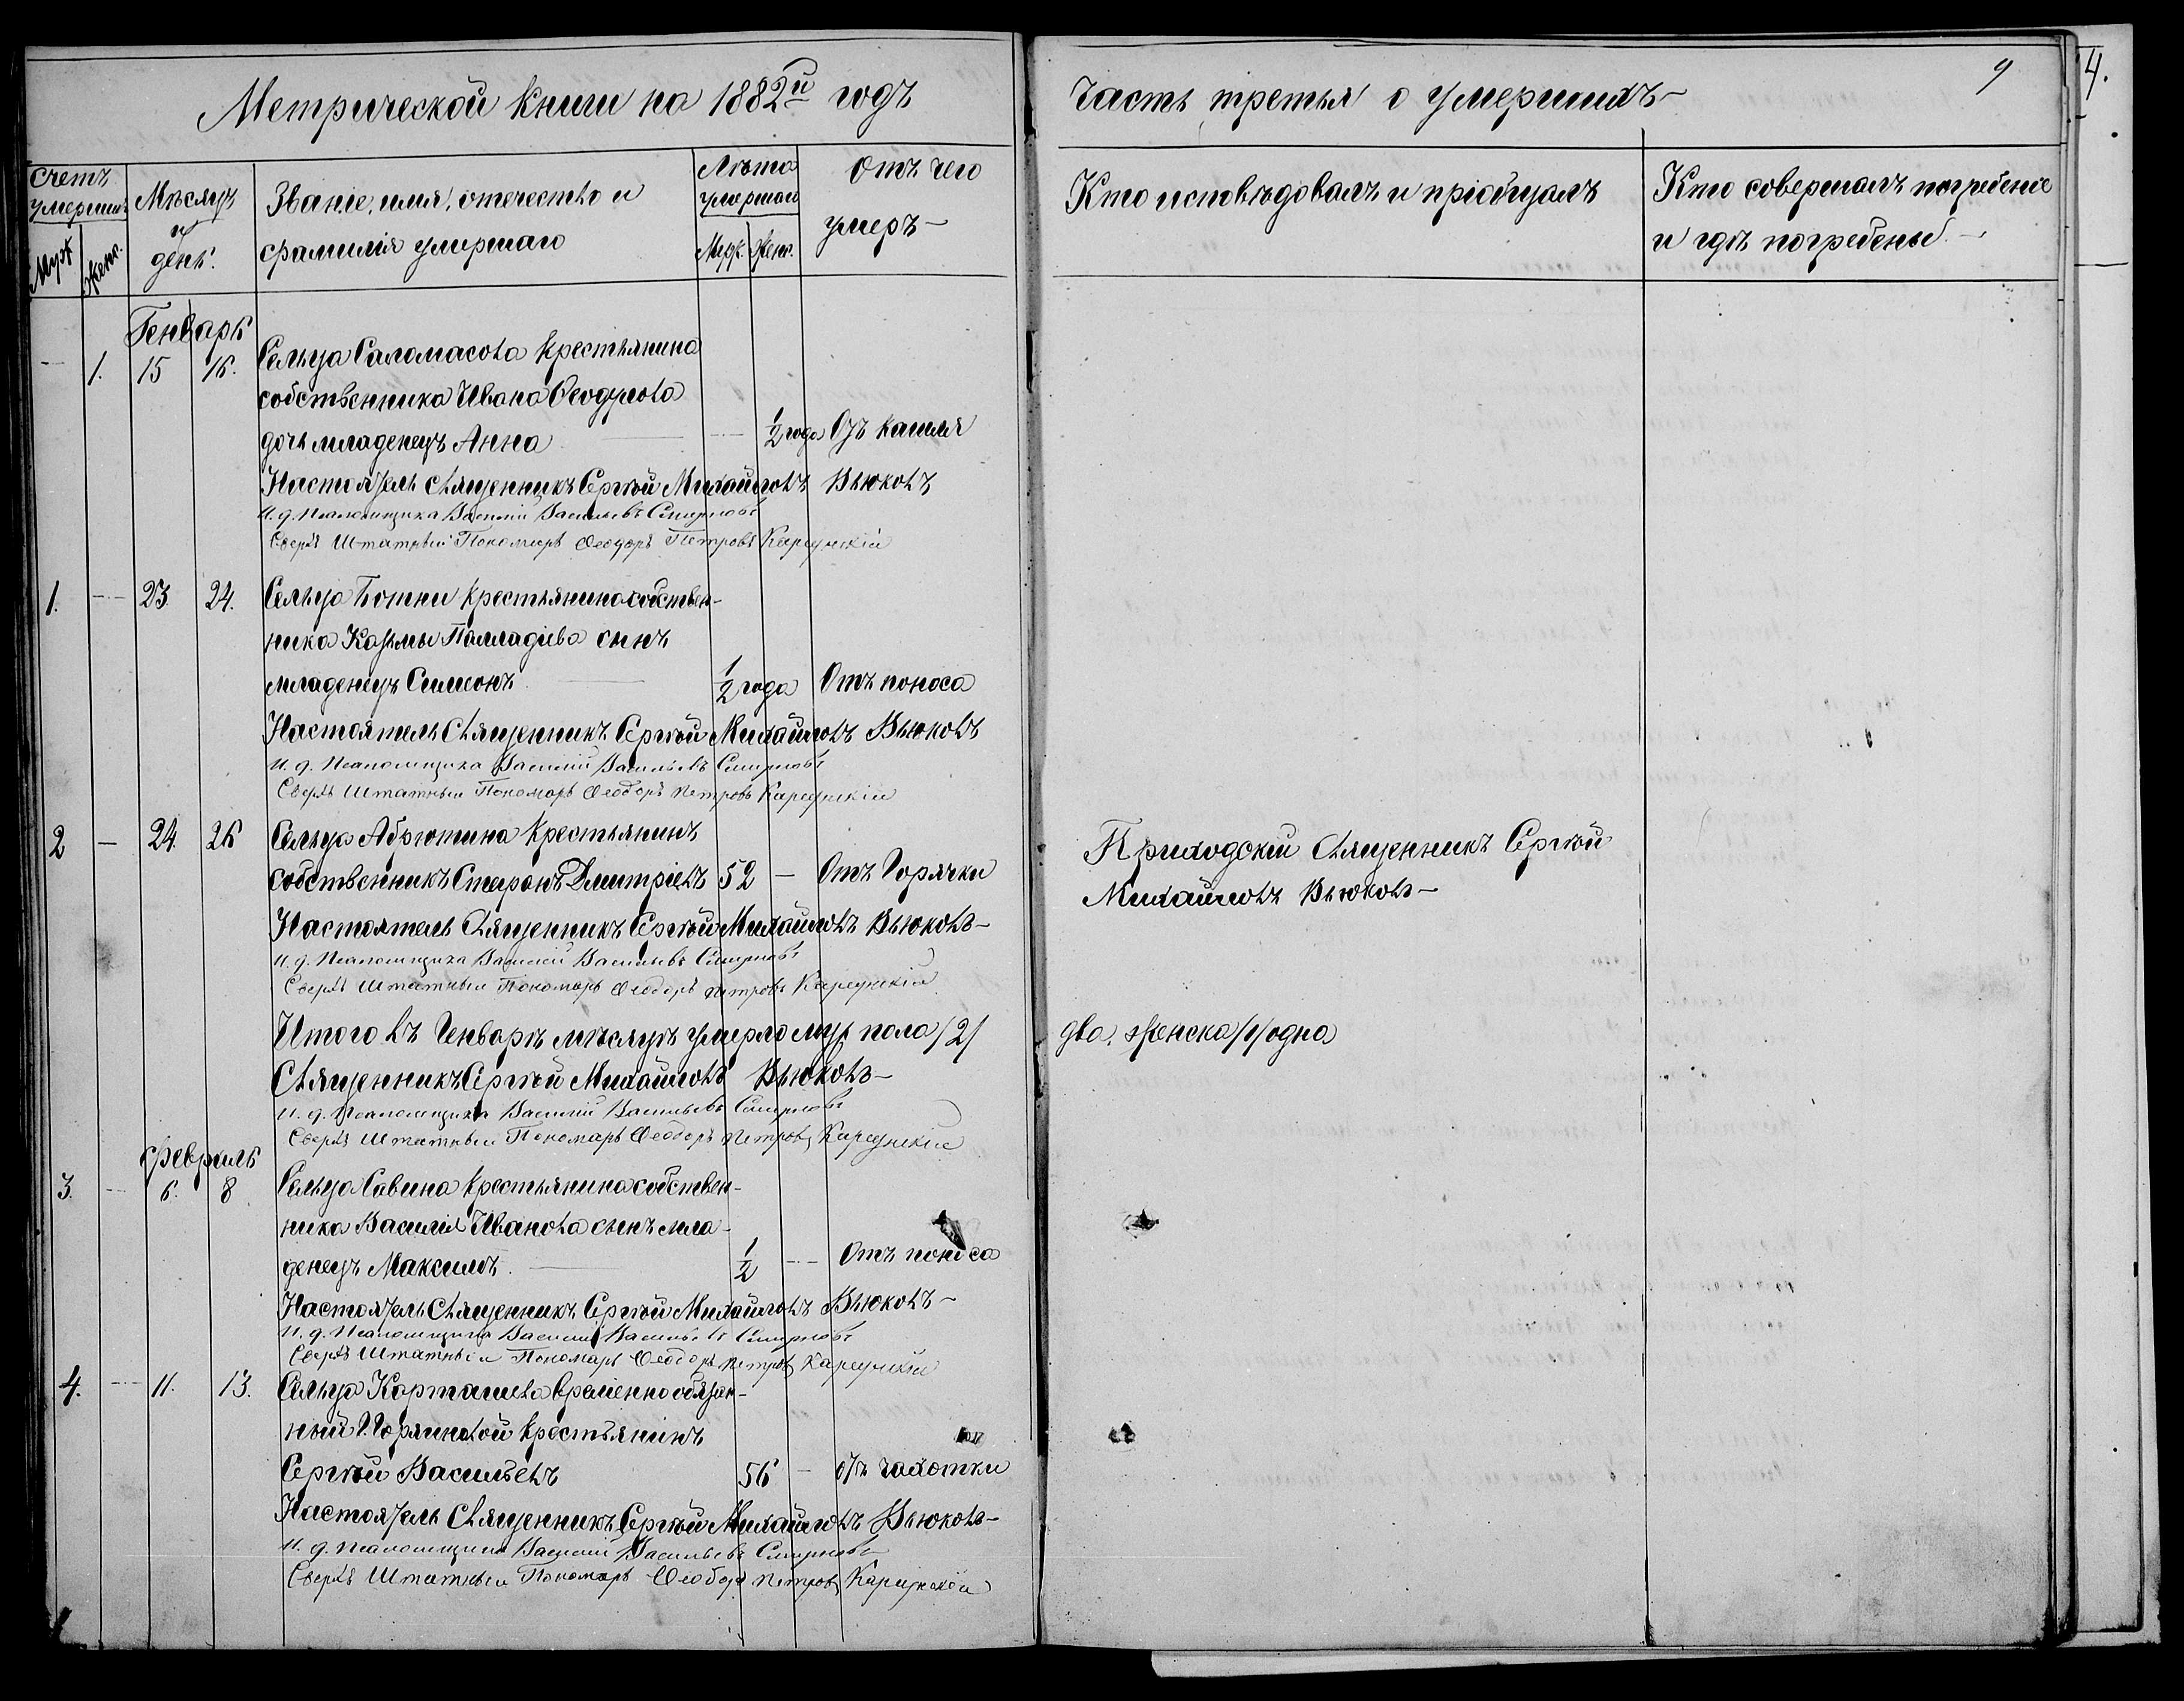 Метрической книги на 1882й годъ
Часть третья о умершихъ
9
4.
Счетъ умершихъ
Муж. Жен.
Мѣсяцъ и день.
Званіе, имя, отечество и
фамилія умершаго
Лѣта умершаго
Муж. Жен.
Отъ чего
умеръ
Кто исповѣдовалъ и пріобщалъ
Кто совершалъ погребеніе
и гдѣ погребены
Генварь
— 1. 15 16. Сельца Саломасова крестьянина
собственника Ивана Ѳеодулова
дочь младенецъ Анна — 1/2 года Отъ кашля
Настоятель Священникъ Сергѣй Михайловъ Вьюковъ
И. д. Псаломщика Василий Васильевъ Смирновъ
Сверхъ Штатный Пономарь Ѳеодоръ Петровъ
1. — 23. 24. Сельца Ботни крестьянина собствен-
ника Козьмы Палладіева сынъ
младенецъ Симеонъ 1/2 года Отъ поноса
Настоятель Священникъ Сергѣй Михайловъ Вьюковъ
И. д. Псаломщика Василий Васильевъ Смирновъ
Сверхъ Штатный Пономарь Ѳеодоръ Петровъ
2 — 24. 26 Сельца Абрютина крестьянинъ
собственникъ Димтріевъ 52 — Отъ Горячки
Приходскій Священникъ Сергѣй
Михайловъ Вьюковъ
Настоятель Священникъ Сергѣй Михайловъ Вьюковъ
И. д. Псаломщика Василий Васильевъ Смирновъ
Сверхъ Штатный Пономарь Ѳеодоръ Петровъ
Итого въ Генварѣ мѣсяцѣ умерло муж. пола /2/ два, женска /1/ одна
Священникъ Сергѣй Михайловъ Вьюковъ
И. д. Псаломщика Василий Васильевъ Смирновъ
Сверхъ Штатный Пономарь Ѳеодоръ Петровъ
Февраль
3. — 6. 8 Сельца Савина крестьянина собствен-
ника Василія Иванова сынъ мла-
денецъ Максимъ. 1/2 — Отъ поноса
Настоятель Священникъ Сергѣй Михайловъ Вьюковъ
И. д. Псаломщика Василий Васильевъ Смирновъ
Сверхъ Штатный Пономарь Ѳеодоръ Петровъ
4. — 11. 13. Сельца Карташева временно обязан-
ный крестьянинъ
Сергѣй Васильевъ 56 — отъ чахотки
Настоятель Священникъ Сергѣй Михайловъ Вьюковъ
И. д. Псаломщика Василий Васильевъ Смирновъ
Сверхъ Штатный Пономарь Ѳеодоръ Петровъ